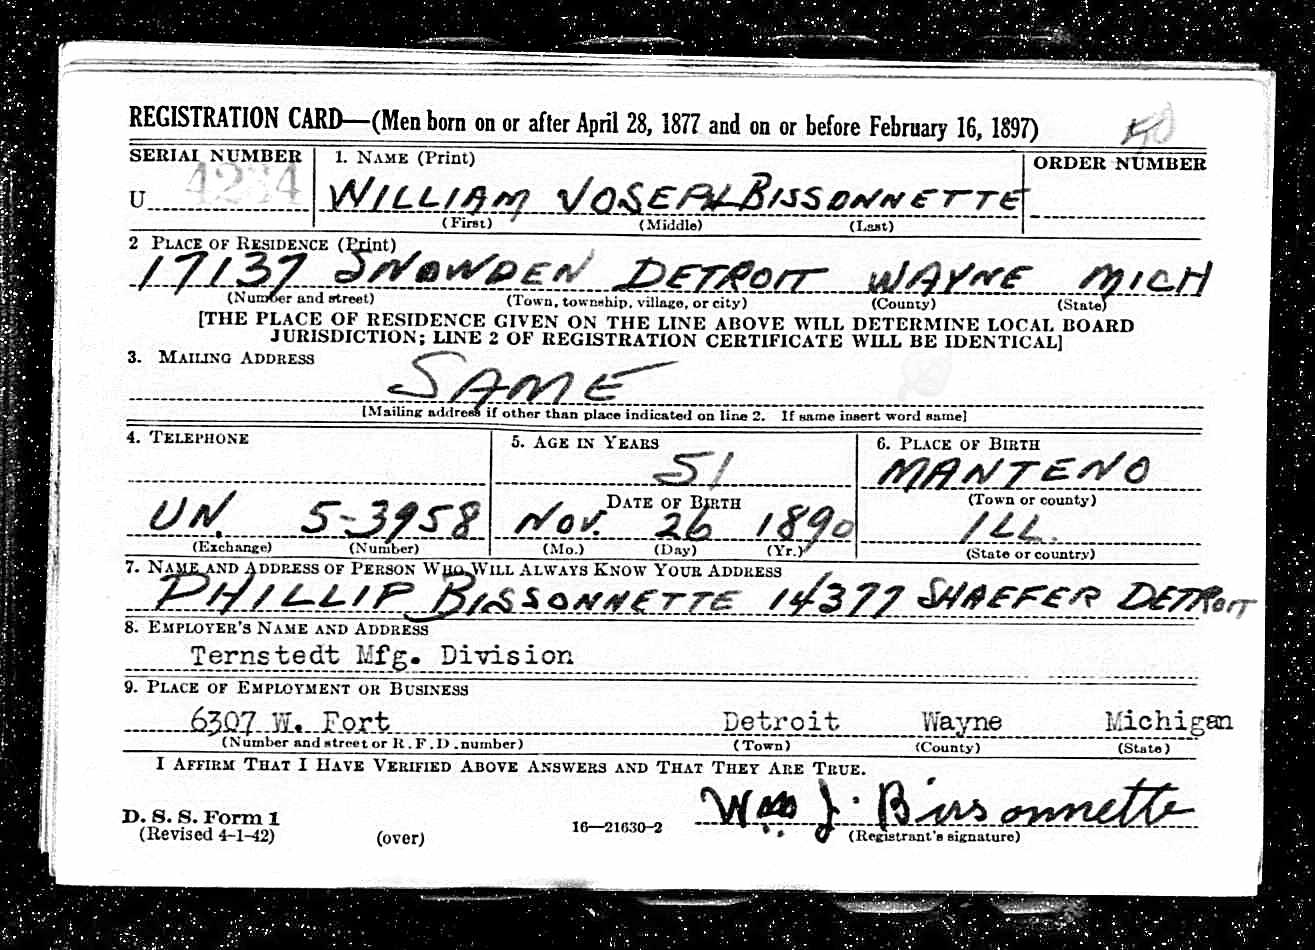 REGISTRATION CARD—(Men born on or after April 28, 1877 and on or before February 16, 1897)
SERIAL NUMBER 1. NAME (Print) ORDER NUMBER
U 4234 WILLIAM JOSEPH BISSONNETTE
(First) (Middle) (Last)
2 PLACE OF RESIDENCE (Print)
17137 SNOWDEN DETROIT WAYNE MICH
(Number and street) (Town, township, village, or city) (County) (State)
[THE PLACE OF RESIDENCE GIVEN ON THE LINE ABOVE WILL DETERMINE LOCAL BOARD
JURISDICTION; LINE 2 OF REGISTRATION CERTIFICATE WILL BE IDENTICAL]
3. MAILING ADDRESS
SAME
[Mailing address if other than place indicated on line 2. If same insert word same]
4. TELEPHONE 5. AGE IN YEARS 6. PLACE OF BIRTH
51 MANTENO
DATE OF BIRTH (Town or county)
UN. 5-3958 NOV. 26 1890 ILL.
(Exchange) (Number) (Mo.) (Day) (Yr.) (State or country)
7. NAME AND ADDRESS OF PERSON WHO WILL ALWAYS KNOW YOUR ADDRESS
PHILLIP BISSONNETTE 14377 SHAEFER DETROIT
8. EMPLOYER'S NAME AND ADDRESS
Ternstedt Mfg. Division
9. PLACE OF EMPLOYMENT OR BUSINESS
6307 W. Fort Detroit Wayne Michigan
(Number and street or R. F. D. number) (Town) (County) (State)
I AFFIRM THAT I HAVE VERIFIED ABOVE ANSWERS AND THAT THEY ARE TRUE.
Wm J. Bissonnette
D. S. S. Form 1
(Revised 4-1-42) (over) 16—21630-2 (Registrant's signature)